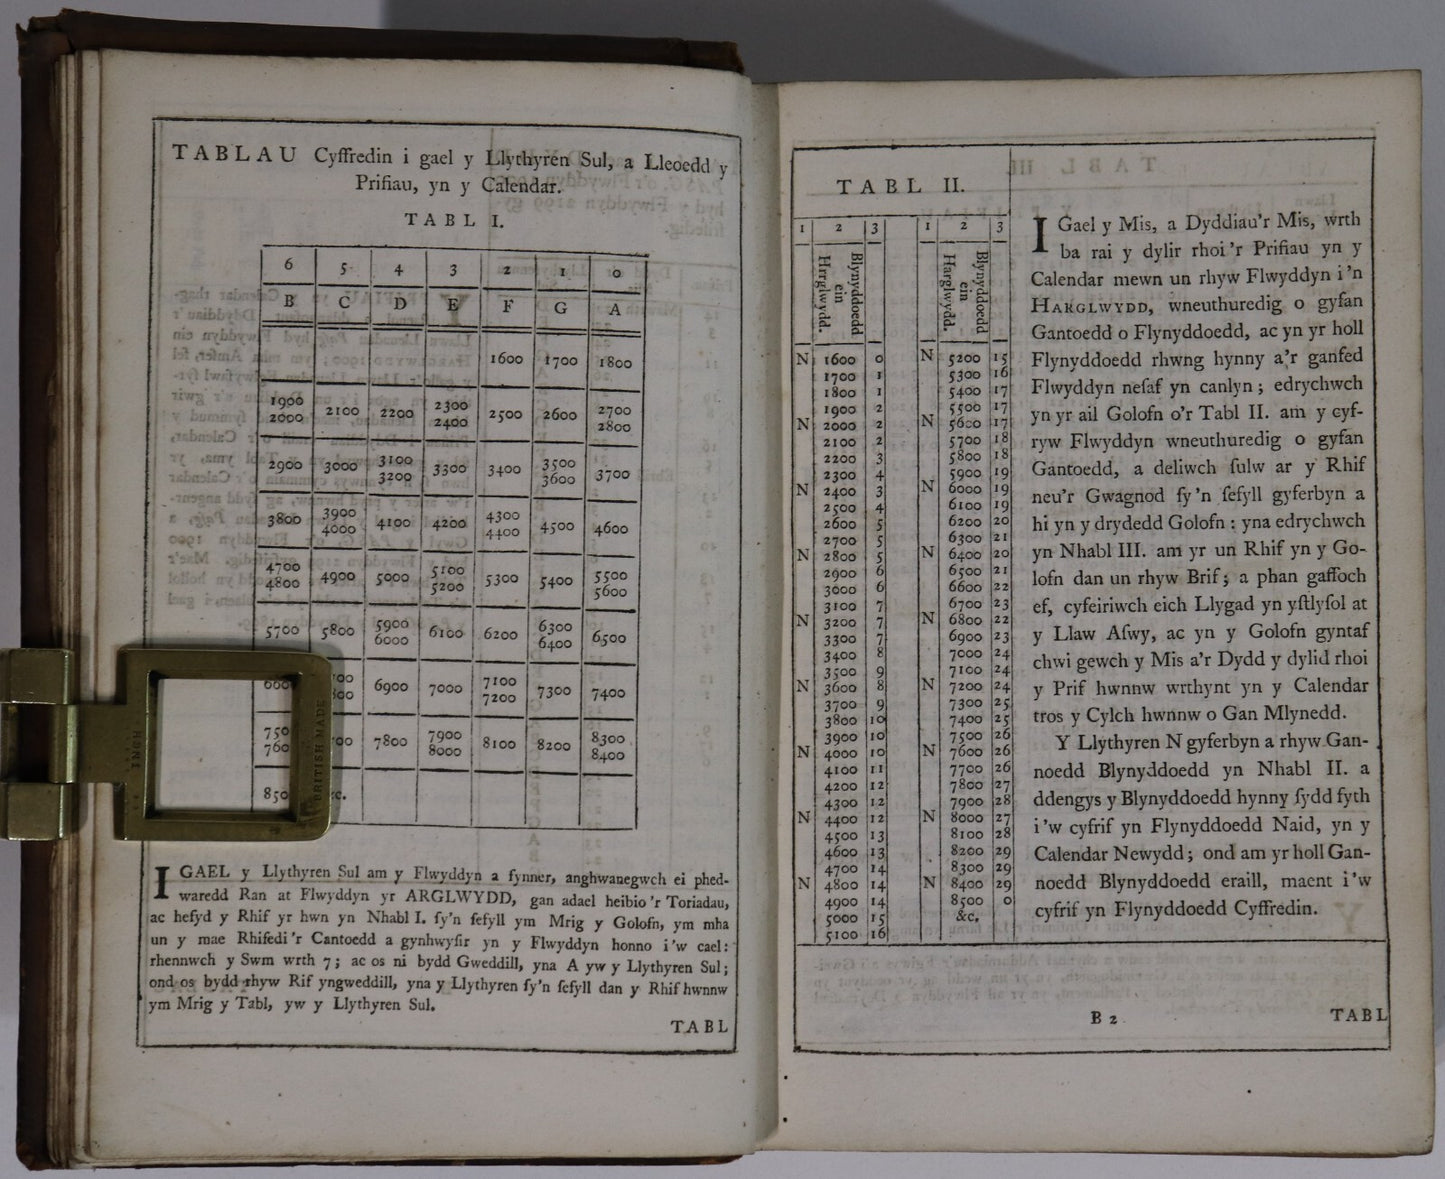 TABLAU Cyffredin i gael y Llythyren Sul, a Lleoedd y
Prifiau, yn y Calendar.
TABL I.
6 5 4 3 2 1 0
B C D E F G A
1600 1700 1800
1900 2000 2100 2200 2300 2400 2500 2600 2700 2800
2900 3000 3100 3200 3300 3400 3500 3600 3700
3800 3900 4000 4100 4200 4300 4400 4500 4600
4700 4800 4900 5000 5100 5200 5300 5400 5500 5600
5700 5800 5900 6000 6100 6200 6300 6400 6500
6900 7000 7100 7200 7300 7400
7800 7900 8000 8100 8200 8300 8400
I GAEL y Llythyren Sul am y Flwyddyn a fynner, anghwanegwch ei phed-
waredd Ran at Flwyddyn yr ARGLWYDD, gan adael heibio'r Toriadau,
ac hefyd y Rhif yr hwn yn Nhabl I. ſy'n ſefyll ym Mrig y Golofn, ym mha
un y mae Rhifedi'r Cantoedd a gynhwyſir yn y Flwyddyn honno i'w cael:
rhennwch y Swm wrth 7; ac os ni bydd Gweddill, yna A yw y Llythyren Sul;
ond os bydd rhyw Rif yngweddill, yna y Llythyren ſy'n ſefyll dan y Rhif hwnnw
ym Mrig y Tabl, yw y Llythyren Sul.
TABL
TABL II.
1 2 3 1 2 3
Blynyddoedd ein Harglwydd. Blynyddoedd ein Harglwydd.
N 1600 0 N 5200 15
1700 1 5300 16
1800 1 5400 17
1900 2 5500 17
N 2000 2 N 5600 17
2100 2 5700 18
2200 3 5800 18
2300 4 5900 19
N 2400 3 N 6000 19
2500 4 6100 19
2600 5 6200 20
2700 5 6300 21
N 2800 5 N 6400 20
2900 6 6500 21
3000 6 6600 22
3100 7 6700 23
N 3200 7 N 6800 22
3300 7 6900 23
3400 8 7000 24
3500 9 7100 24
N 3600 8 N 7200 24
3700 9 7300 25
3800 10 7400 25
3900 10 7500 26
N 4000 10 N 7600 26
4100 11 7700 26
4200 12 7800 27
4300 12 7900 28
N 4400 12 N 8000 27
4500 13 8100 28
4600 13 8200 29
4700 14 8300 29
N 4800 14 N 8400 29
4900 14 8500 0
5000 15 &c.
5100 16
I Gael y Mis, a Dyddiau'r Mis, wrth
ba rai y dylir rhoi'r Prifiau yn y
Calendar mewn un rhyw Flwyddyn i'n
HARGLWYDD, wneuthuredig o gyfan
Gantoedd o Flynyddoedd, ac yn yr holl
Flynyddoedd rhwng hynny a'r ganfed
Flwyddyn neſaf yn canlyn; edrychwch
yn yr ail Golofn o'r Tabl II. am y cyf-
ryw Flwyddyn wneuthuredig o gyfan
Gantoedd, a deliwch ſulw ar y Rhif
neu'r Gwagnod ſy'n ſefyll gyferbyn a
hi yn y drydedd Golofn: yna edrychwch
yn Nhabl III. am yr un Rhif yn y Go-
lofn dan un rhyw Brif; a phan gaffoch
ef, cyfeiriwch eich Llygad yn yſtlyſol at
y Llaw Aſwy, ac yn y Golofn gyntaf
chwi gewch y Mis a'r Dydd y dylid rhoi
y Prif hwnnw wrthynt yn y Calendar
tros y Cylch hwnnw o Gan Mlynedd.
Y Llythyren N gyferbyn a rhyw Gan-
noedd Blynyddoedd yn Nhabl II. a
ddengys y Blynyddoedd hynny ſydd fyth
i'w cyfrif yn Flynyddoedd Naid, yn y
Calendar Newydd; ond am yr holl Gan-
noedd Blynyddoedd eraill, maent i'w
cyfrif yn Flynyddoedd Cyffredin.
B 2
TABL
INCH
BRITISH MADE